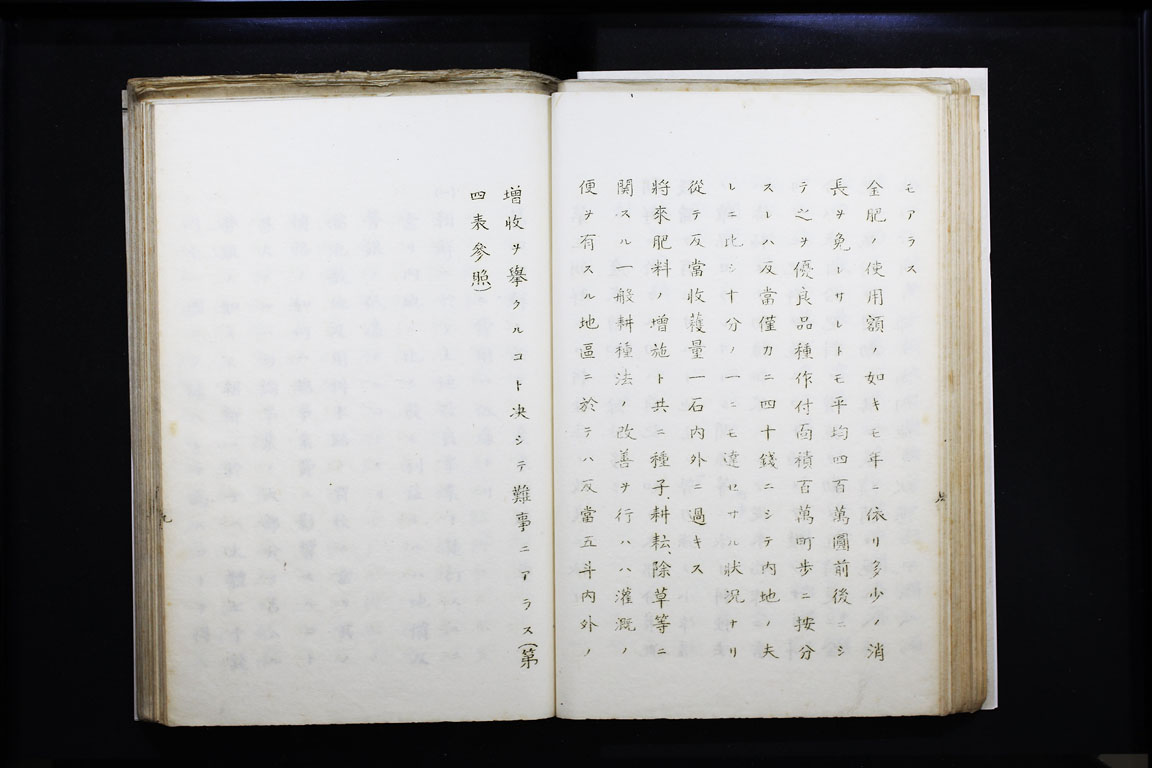 モアラス
金肥ノ使用額ノ如キモ年ニ依リ多少ノ消
長ヲ免レサレトモ平均四百萬圓前後ニシ
テ之ヲ優良品種作付面積百萬町歩ニ按分
スレハ反當僅カニ四十錢ニシテ内地ノ夫
レニ比シ十分ノ一ニモ達セサル状況ナリ
從テ反當收穫量一石内外ニ過キス
將來肥料ノ增施ト共ニ種子、耕耘、除草等ニ
關スル一般耕種法ノ改善ヲ行ハハ灌漑ノ
便ヲ有スル地區ニ於テハ反當五斗内外ノ
增收ヲ擧クルコト決シテ難事ニアラス(第
四表參照)
九